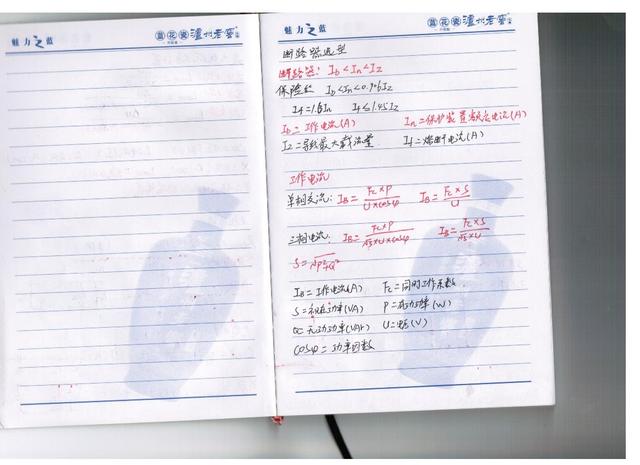 魅力之蓝
蓝花瓷 泸州老窖
魅力之蓝
蓝花瓷 泸州老窖
断路器选型
断路器: Ib<In<Iz
保险丝 Ib<In<0.96Iz
If=1.6In If≤1.45Iz
Ib=工作电流(A) In=保护装置额定电流(A)
Iz=导线最大载流量 If=熔断电流(A)
工作电流
单相交流: IB= Fc×P / U×cosφ IB= Fc×S / U
三相电流: IB= Fc×P / √3×U×cosφ IB= Fc×S / √3×U
S=√P²+Q²
IB=工作电流(A) Fc=同时工作系数
S=视在功率(VA) P=有功功率(W)
Q=无功功率(VAr) U=电压(V)
cosφ=功率因数